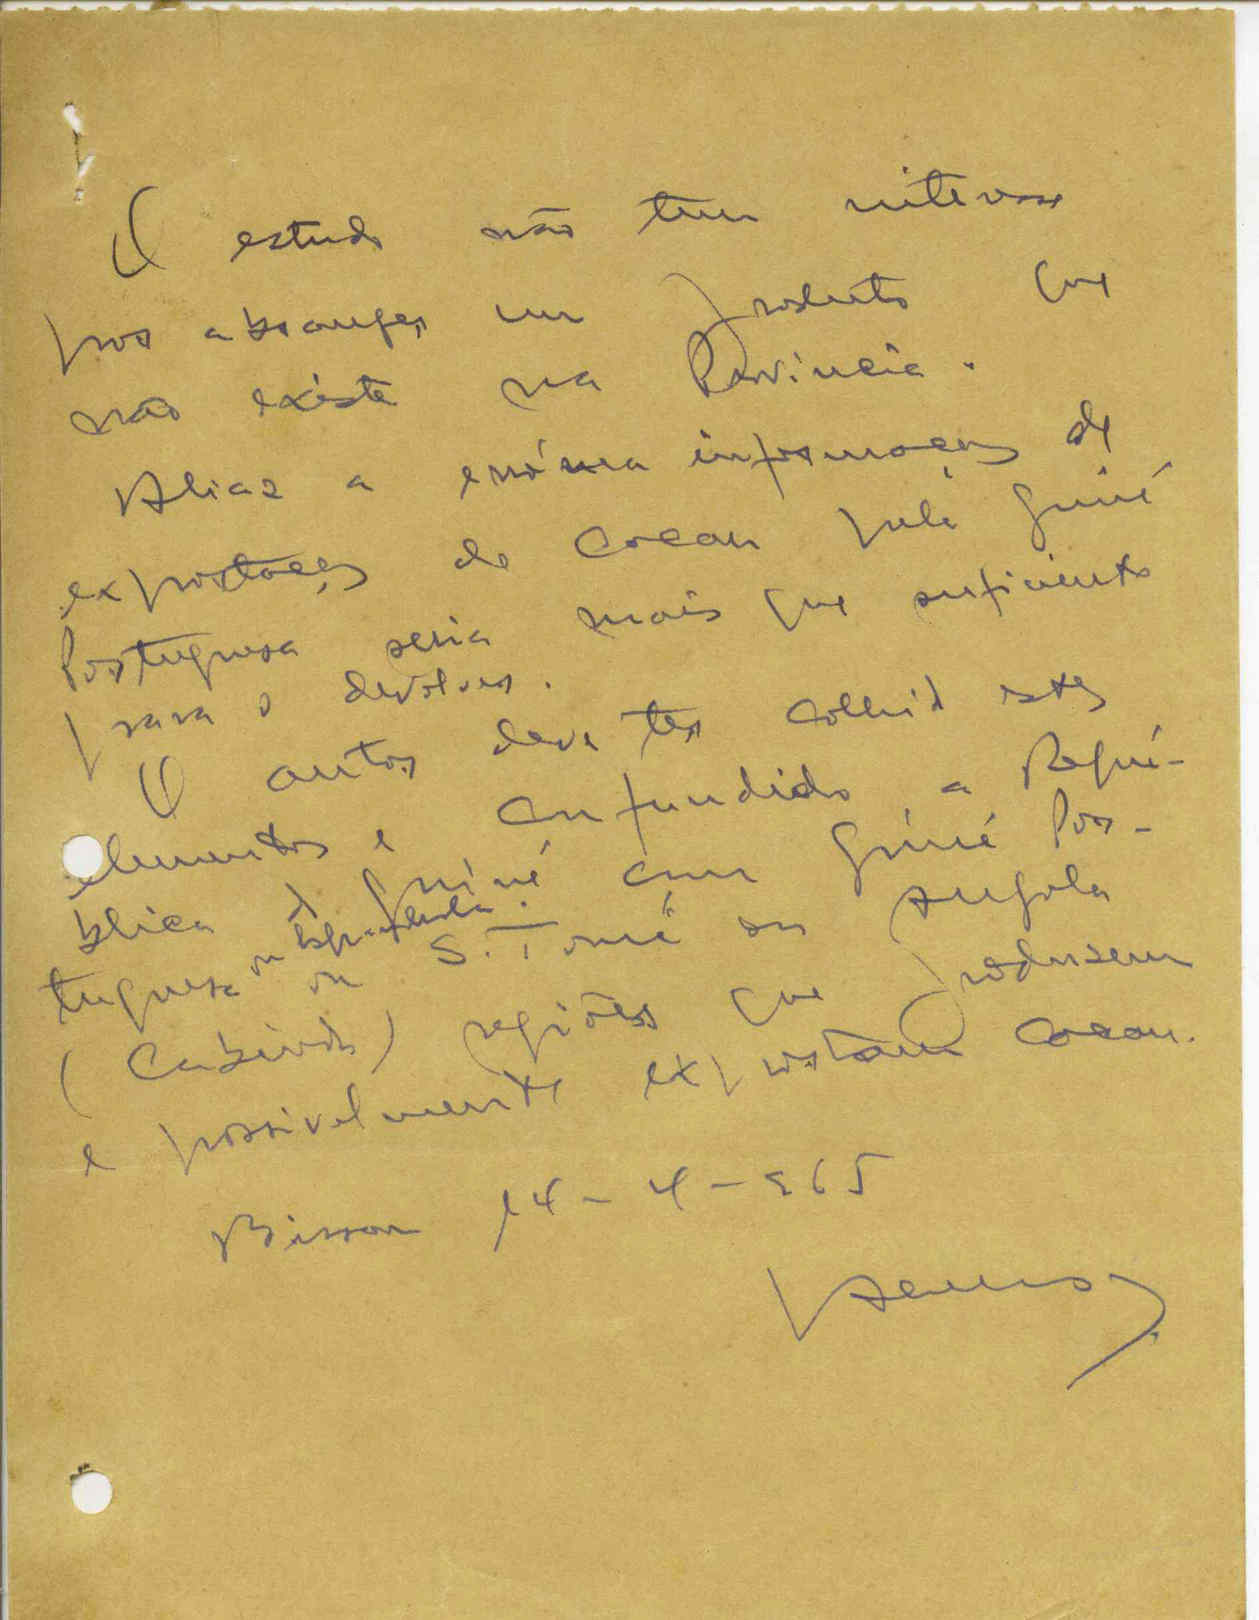 O estudo não tem interesse
por abranger um producto que
não existe na Provincia.
Aliaz a errónea informação de
exportação do cacau pela Guiné
Portuguesa seria mais que suficiente
para o devolver.
O autor deve ter colhid estes
elementos e confundido a Repú-
blica d Guiné com Guiné Por-
tuguesa ou Espanhola
ou S. Tomé ou Angola
(Cabinda) regiões que produzem
e possivelmente exportam cacau.
Bissau 14-4-965